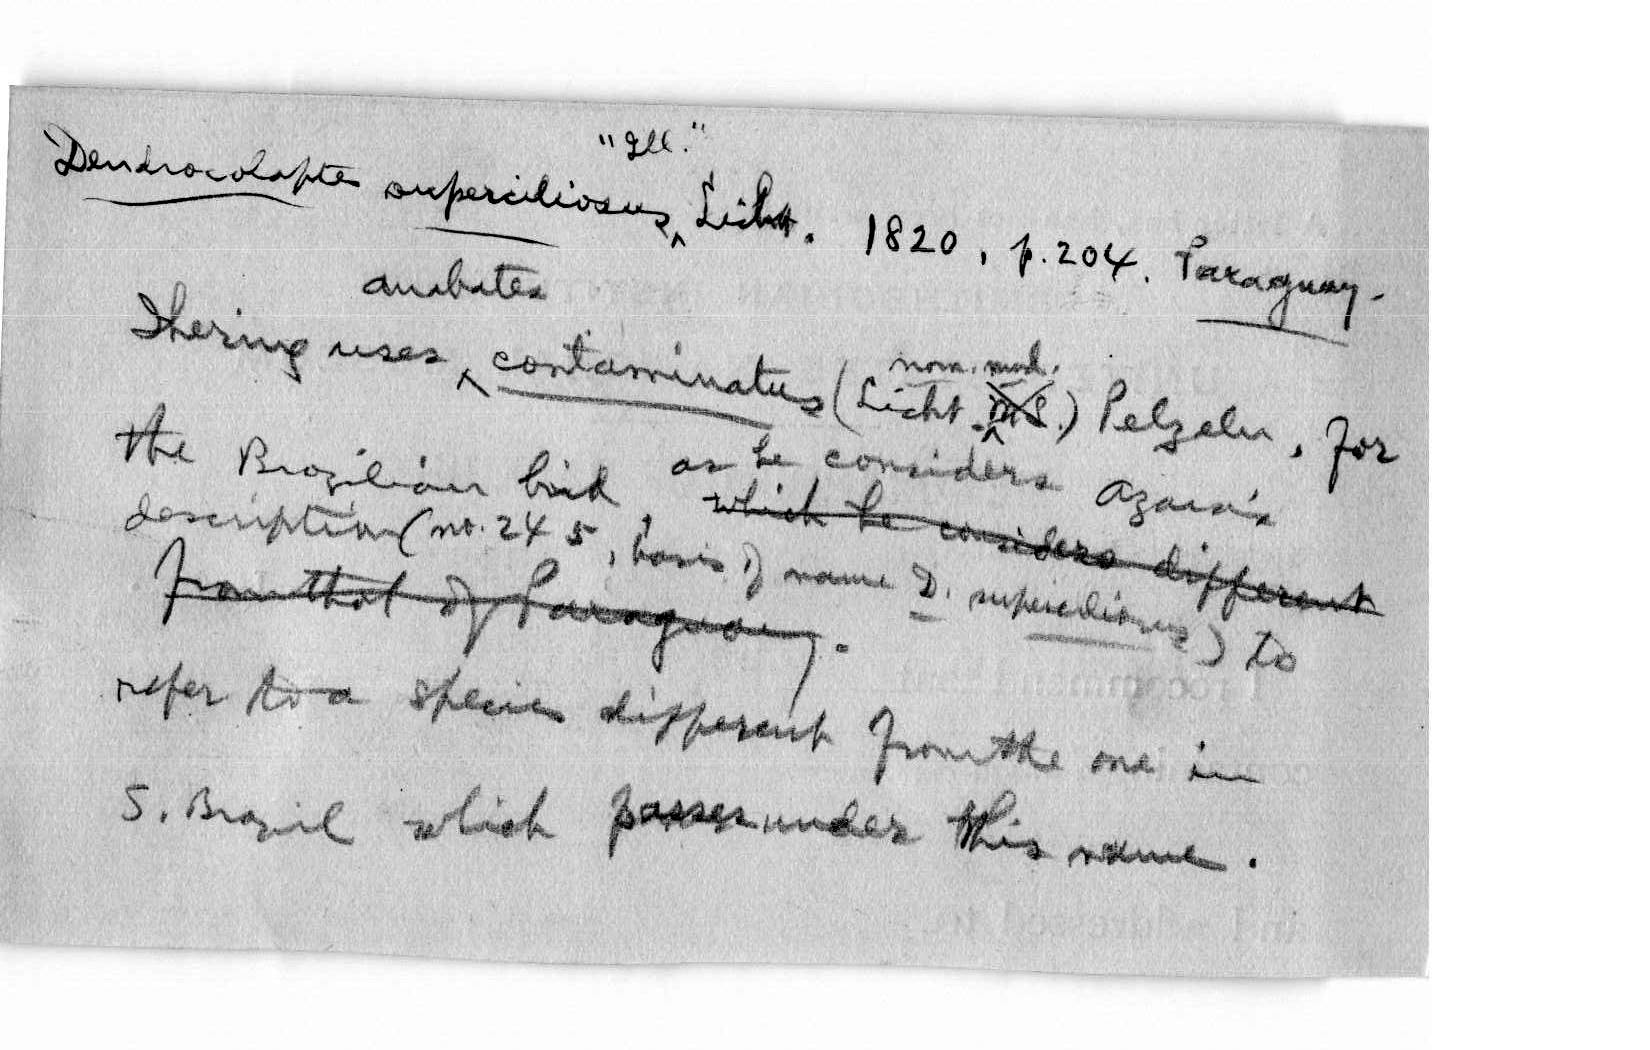 "Ill."
Dendrocolaptes superciliosus ‸ Licht. 1820, p. 204. Paraguay.
anabates
Ihering uses ‸ contaminatus (Licht. ‸ MS.) Pelzeln, for
nom. nud.
the Brazilian bird, as he considers Azara's
which he considers different
description (no. 245, basis of name D. superciliosus) to
from that of Paraguay.
refer to a species different from the one in
S. Brazil which passes under this name.